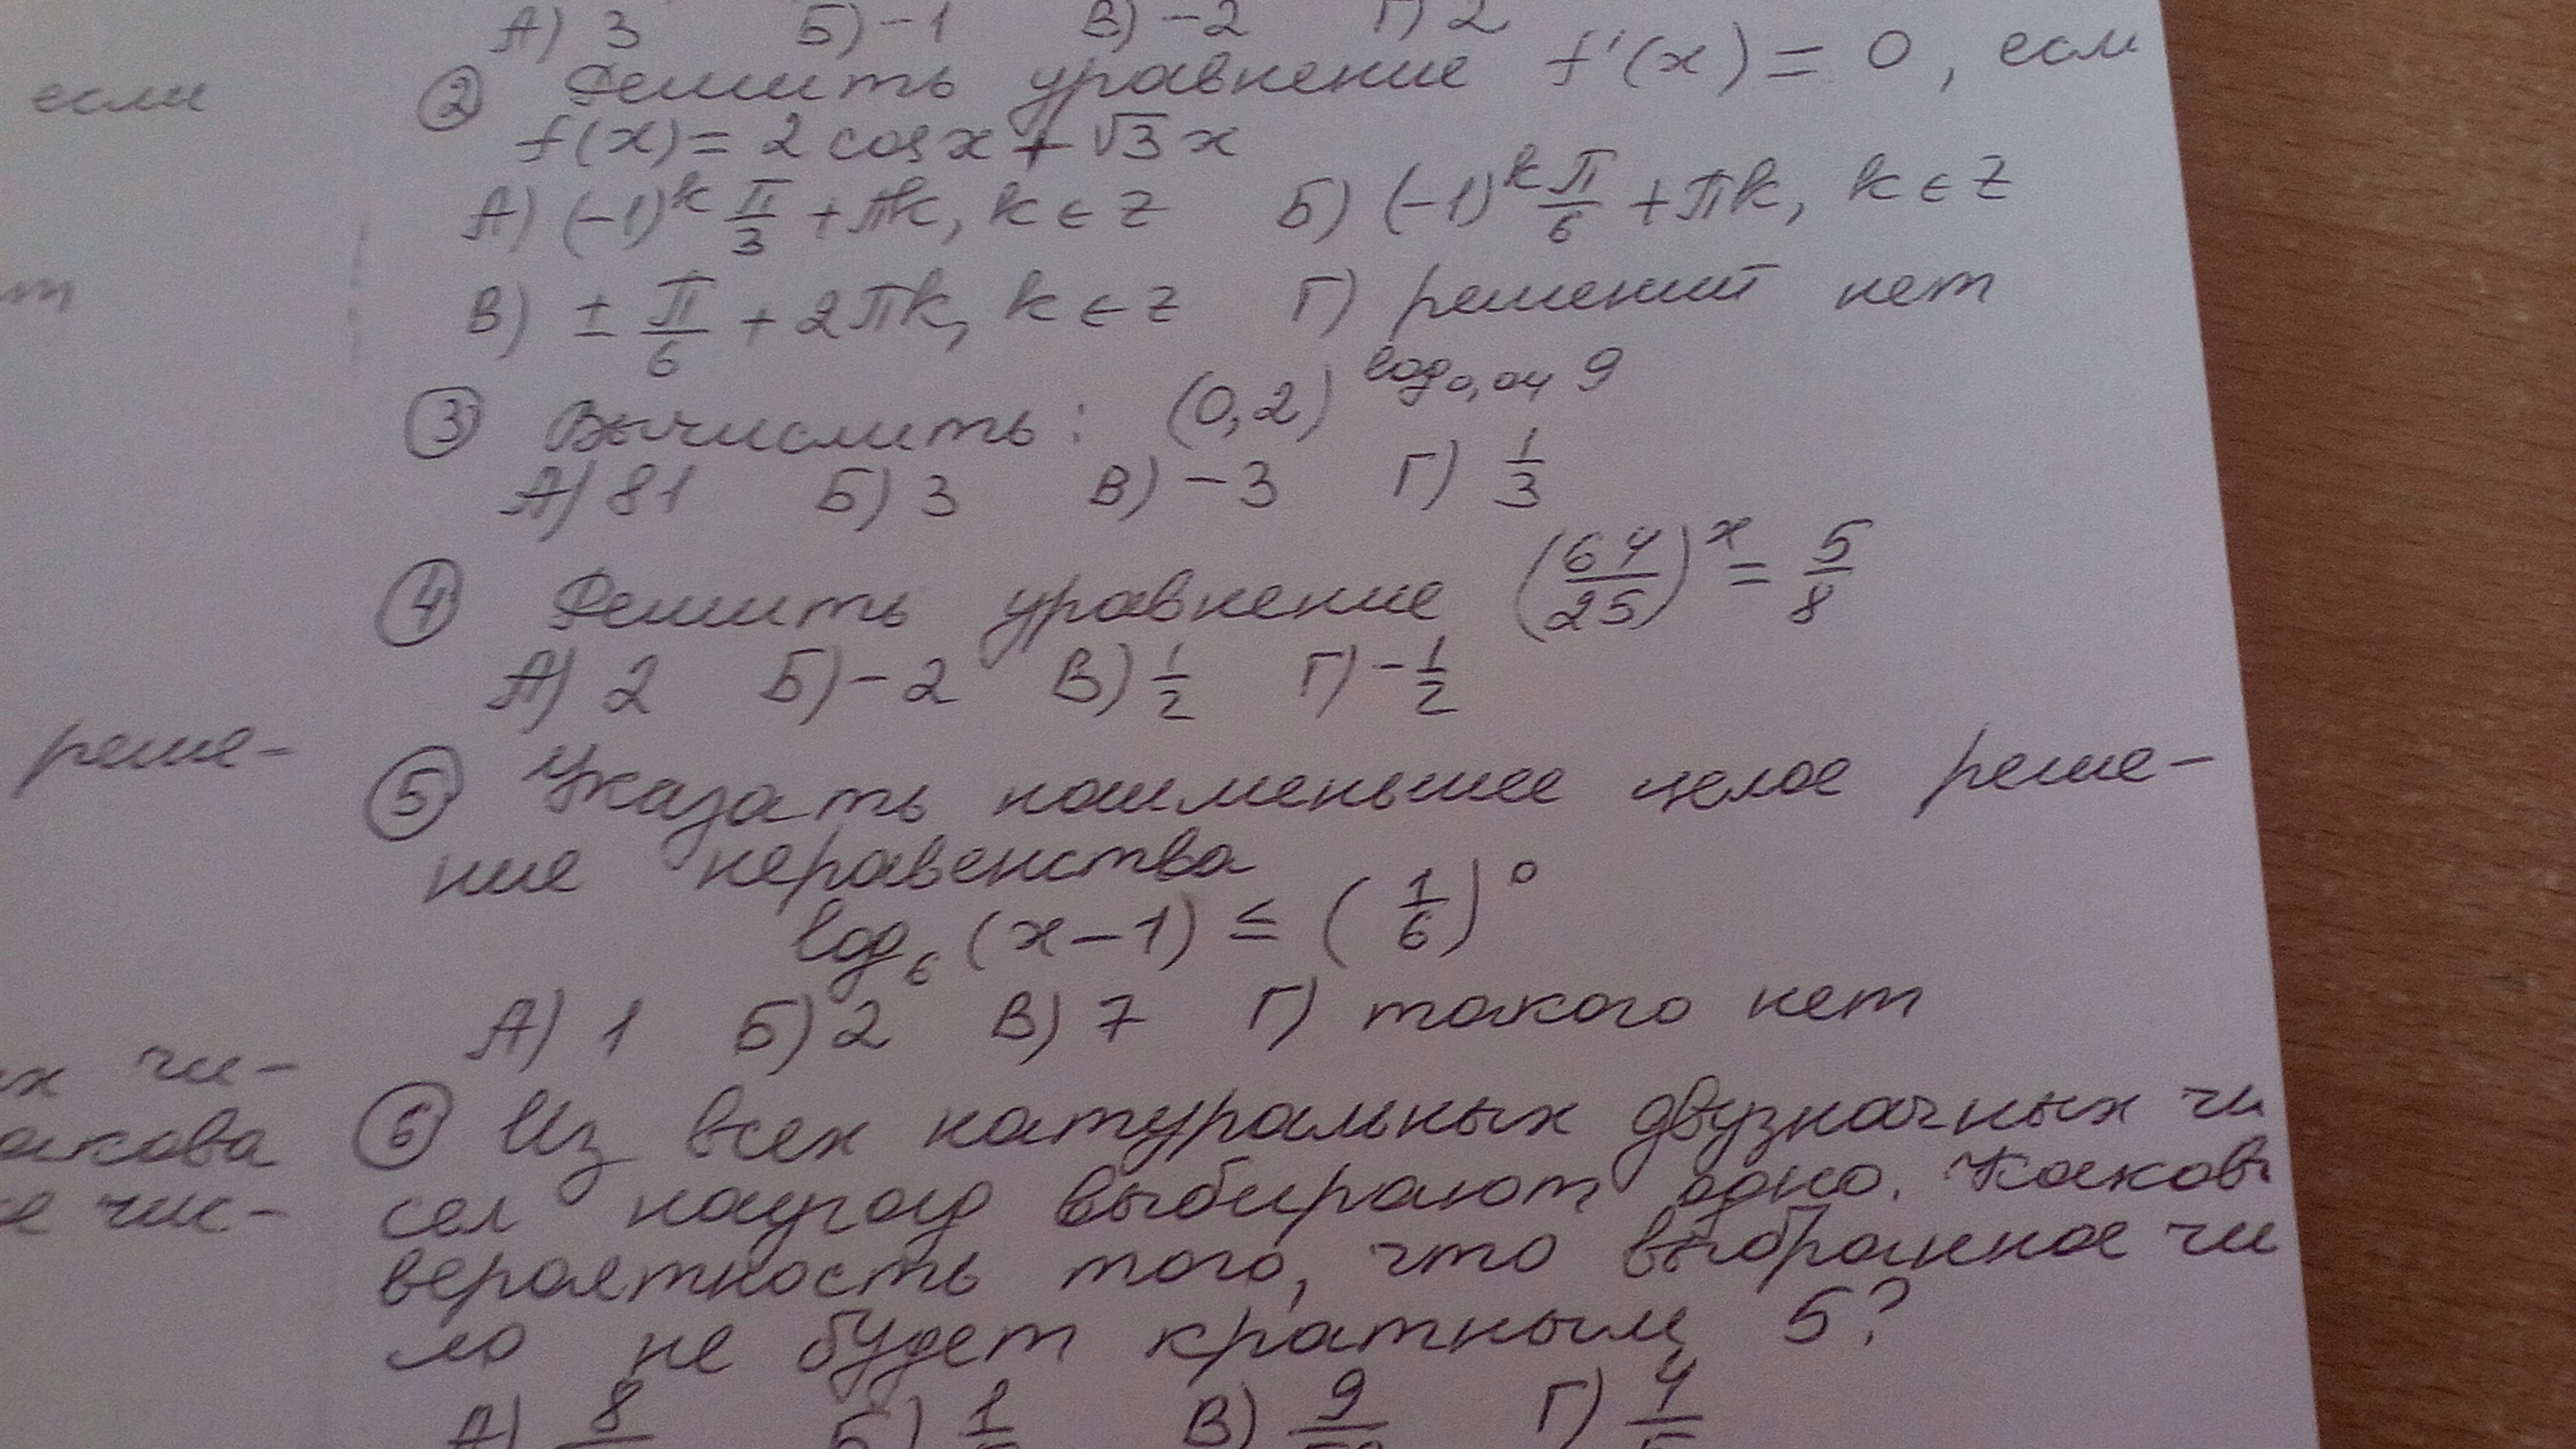 А) 3 Б) -1 В) -2 Г) 2
② Решить уравнение f'(x) = 0, если
f(x) = 2 cos x + √3 x
А) (-1)^k π/3 + πk, k ∈ Z Б) (-1)^k π/6 + πk, k ∈ Z
В) ± π/6 + 2πk, k ∈ Z Г) решений нет
③ Вычислить: (0,2)^log_0,04 9
А) 81 Б) 3 В) -3 Г) 1/3
④ Решить уравнение (64/25)^x = 5/8
А) 2 Б) -2 В) 1/2 Г) -1/2
⑤ Указать наименьшее целое реше-
ние неравенства
log_6 (x-1) ≤ (1/6)^0
А) 1 Б) 2 В) 7 Г) такого нет
⑥ Из всех натуральных двузначных чи
сел наугад выбирают одно. Какова
вероятность того, что выбранное чи
ло не будет кратным 5?
А) 8 Б) 1 В) 9 Г) 4
если
реше-
чи-
чис-